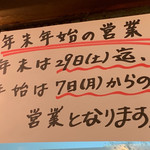 年末年始の営業
年末は29日(土)迄、
年始は7日(月)からの
営業となります